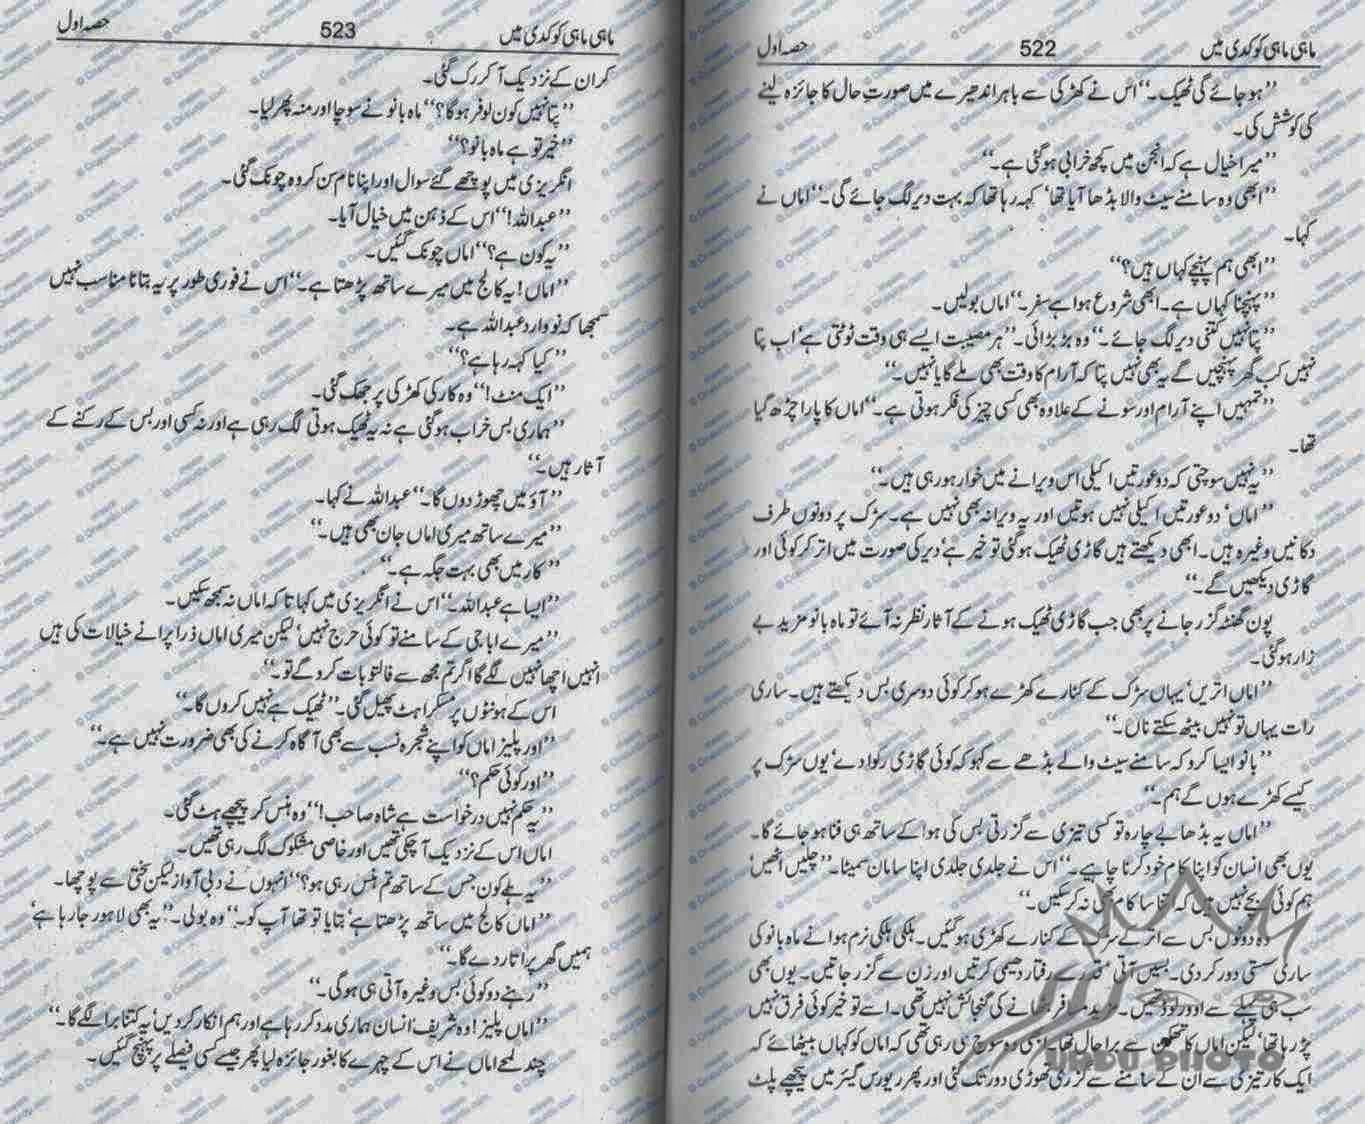 ماہی ماہی کوکدی میں 522 حصہ اول
”ہو جائے گی ٹھیک۔“ اس نے کھڑکی سے باہر اندھیرے میں صورتِ حال کا جائزہ لینے
کی کوشش کی۔
”میرا خیال ہے کہ انجن میں کچھ خرابی ہو گئی ہے۔“
”ابھی وہ سامنے سیٹ والا بڈھا آیا تھا‘ کہہ رہا تھا کہ بہت دیر لگ جائے گی۔“ اماں نے
کہا۔
”ابھی ہم پہنچے کہاں ہیں؟“
”پہنچنا کہاں ہے۔ ابھی شروع ہوا ہے سفر۔“ اماں بولیں۔
”پتا نہیں کتنی دیر لگ جائے۔“ وہ بڑبڑائی۔ ”ہر مصیبت ایسے ہی وقت ٹوٹتی ہے‘ اب پتا
نہیں کب گھر پہنچیں گے یہ بھی نہیں پتا کہ آرام کا وقت بھی ملے گا یا نہیں۔“
”تمہیں اپنے آرام اور سونے کے علاوہ بھی کسی چیز کی فکر ہوتی ہے۔“ اماں کا پارا چڑھ گیا
تھا۔
”یہ نہیں سوچتی کہ دو عورتیں اکیلی اس ویرانے میں خوار ہو رہی ہیں۔“
”اماں‘ دو عورتیں اکیلی نہیں ہوتیں اور یہ ویرانہ بھی نہیں ہے۔ سڑک پر دونوں طرف
دکانیں وغیرہ ہیں۔ ابھی دیکھتے ہیں گاڑی ٹھیک ہو گئی تو خیر ہے‘ دیر کی صورت میں اتر کر کوئی اور
گاڑی دیکھیں گے۔“
پون گھنٹہ گزر جانے پر بھی جب گاڑی ٹھیک ہونے کے آثار نظر نہ آئے تو ماہ بانو مزید بے
زار ہو گئی۔
”اماں اتریں‘ یہاں سڑک کے کنارے کھڑے ہو کر کوئی دوسری بس دیکھتے ہیں۔ ساری
رات یہاں تو نہیں بیٹھ سکتے ناں۔“
”بانو ایسا کرو کہ سامنے سیٹ والے بڈھے سے کہو کہ کوئی گاڑی رکوا دے‘ یوں سڑک پر
کیسے کھڑے ہوں گے ہم۔“
”اماں یہ بڈھا بے چارہ تو کسی تیزی سے گزرتی بس کی ہوا کے ساتھ ہی فنا ہو جائے گا۔
یوں بھی انسان کو اپنا کام خود کرنا چاہیے۔“ اس نے جلدی جلدی اپنا سامان سمیٹا۔ ”چلیں اٹھیں‘
ہم کوئی بچے نہیں ہیں کہ اتنا سا کام بھی نہ کر سکیں۔“
وہ دونوں بس سے اتر کے سڑک کے کنارے کھڑی ہو گئیں۔ ہلکی ہلکی نرم ہوا نے ماہ بانو کی
ساری سستی دور کر دی۔ بسیں آتی‘ قدرے رفتار دھیمی کرتیں اور زن سے گزر جاتیں۔ یوں بھی
سب ہی پہلے سے اوورلوڈ تھیں۔ مزید مسافر بٹھانے کی گنجائش نہیں تھی۔ اسے تو خیر کوئی فرق نہیں
پڑ رہا تھا‘ لیکن اماں کا تھکن سے برا حال تھا۔ ابھی وہ سوچ ہی رہی تھی کہ اماں کو کہاں بیٹھائے کہ
ایک کار تیزی سے ان کے سامنے سے گزری تھوڑی دور تک گئی اور پھر ریورس گیئر میں پیچھے پلٹ
URDU PHOTO
ماہی ماہی کوکدی میں 523 حصہ اول
کر ان کے نزدیک آ کر رک گئی۔
”پتا نہیں کون لوفر ہو گا؟“ ماہ بانو نے سوچا اور منہ پھر لیا۔
”خیر تو ہے ماہ بانو؟“
انگریزی میں پوچھے گئے سوال اور اپنا نام سن کر وہ چونک گئی۔
”عبداللہ!“ اس کے ذہن میں خیال آیا۔
”یہ کون ہے؟“ اماں چونک گئیں۔
”اماں! یہ کالج میں میرے ساتھ پڑھتا ہے۔“ اس نے فوری طور پر یہ بتانا مناسب نہیں
سمجھا کہ نووارد عبداللہ ہے۔
”کیا کہہ رہا ہے؟“
”ایک منٹ!“ وہ کار کی کھڑکی پر جھک گئی۔
”ہماری بس خراب ہو گئی ہے نہ یہ ٹھیک ہوتی لگ رہی ہے اور نہ کسی اور بس کے رکنے کے
آثار ہیں۔“
”آؤ میں چھوڑ دوں گا۔“ عبداللہ نے کہا۔
”میرے ساتھ میری اماں جان بھی ہیں۔“
”کار میں بھی بہت جگہ ہے۔“
”ایسا ہے عبداللہ۔“ اس نے انگریزی میں کہا تا کہ اماں نہ سمجھ سکیں۔
”میرے ابا جی کے سامنے تو کوئی حرج نہیں‘ لیکن میری اماں ذرا پرانے خیالات کی ہیں
انہیں اچھا نہیں لگے گا اگر تم مجھ سے فالتو بات کرو گے تو۔“
اس کے ہونٹوں پر مسکراہٹ پھیل گئی۔ ”ٹھیک ہے نہیں کروں گا۔“
”اور پلیز اماں کو اپنے شجرہ نسب سے بھی آگاہ کرنے کی بھی ضرورت نہیں ہے۔“
”اور کوئی حکم؟“
”یہ حکم نہیں درخواست ہے شاہ صاحب!“ وہ ہنس کر پیچھے ہٹ گئی۔
اماں اس کے نزدیک آ چکی تھیں اور خاصی مشکوک لگ رہی تھیں۔
”یہ ہے کون جس کے ساتھ تم ہنس رہی ہو؟“ انہوں نے دبی آواز لیکن سختی سے پوچھا۔
”اماں کالج میں ساتھ پڑھتا ہے‘ بتایا تو تھا آپ کو۔“ وہ بولی۔ ”یہ بھی لاہور جا رہا ہے‘
ہمیں گھر پر اتار دے گا۔“
”رہنے دو کوئی بس وغیرہ آتی ہی ہوگی۔“
”اماں پلیز! وہ شریف انسان ہماری مدد کر رہا ہے اور ہم انکار کر دیں‘ یہ کتنا برا لگے گا۔“
چند لمحے اماں نے اس کے چہرے کا بغور جائزہ لیا پھر جیسے کسی فیصلے پر پہنچ گئیں۔